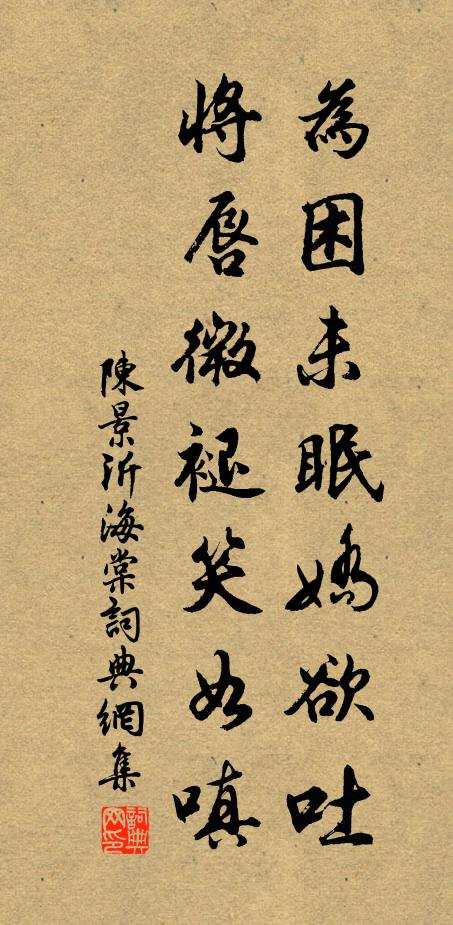 為困未眠嬌欲吐
將唇微褪笑如嗔
陳景沂海棠詞典網集
詞典網印